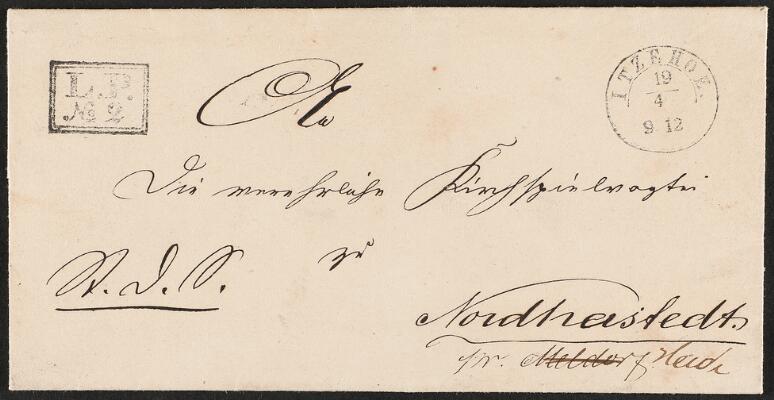 L.P.
№ 2.
ITZEHOE.
19
4
9 12
An
Die verehrliche Kirchspielvogtei
zu
S. D. S.
Nordhastedt.
pr. Meldorf Heide